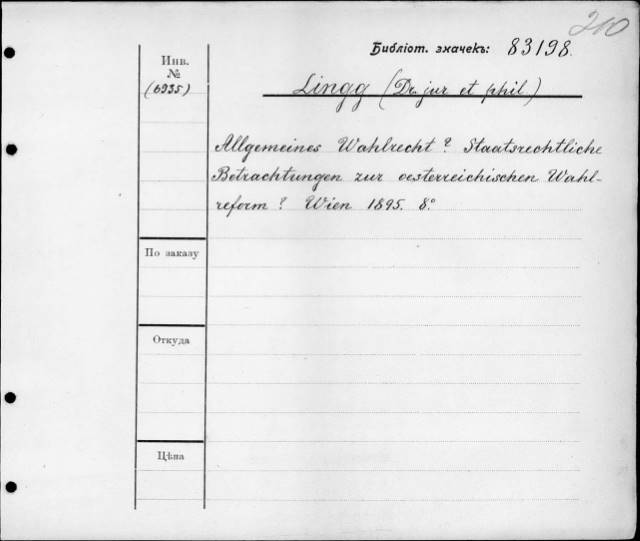 210
Библіот. значекъ: 83198.
Инв.
№
(6935)
Lingg (Dr. jur et phil)
Allgemeines Wahlrecht? Staatsrechtliche
Betrachtungen zur oesterreichischen Wahl-
reform? Wien 1895. 8.º
По заказу
Откуда
Цѣна